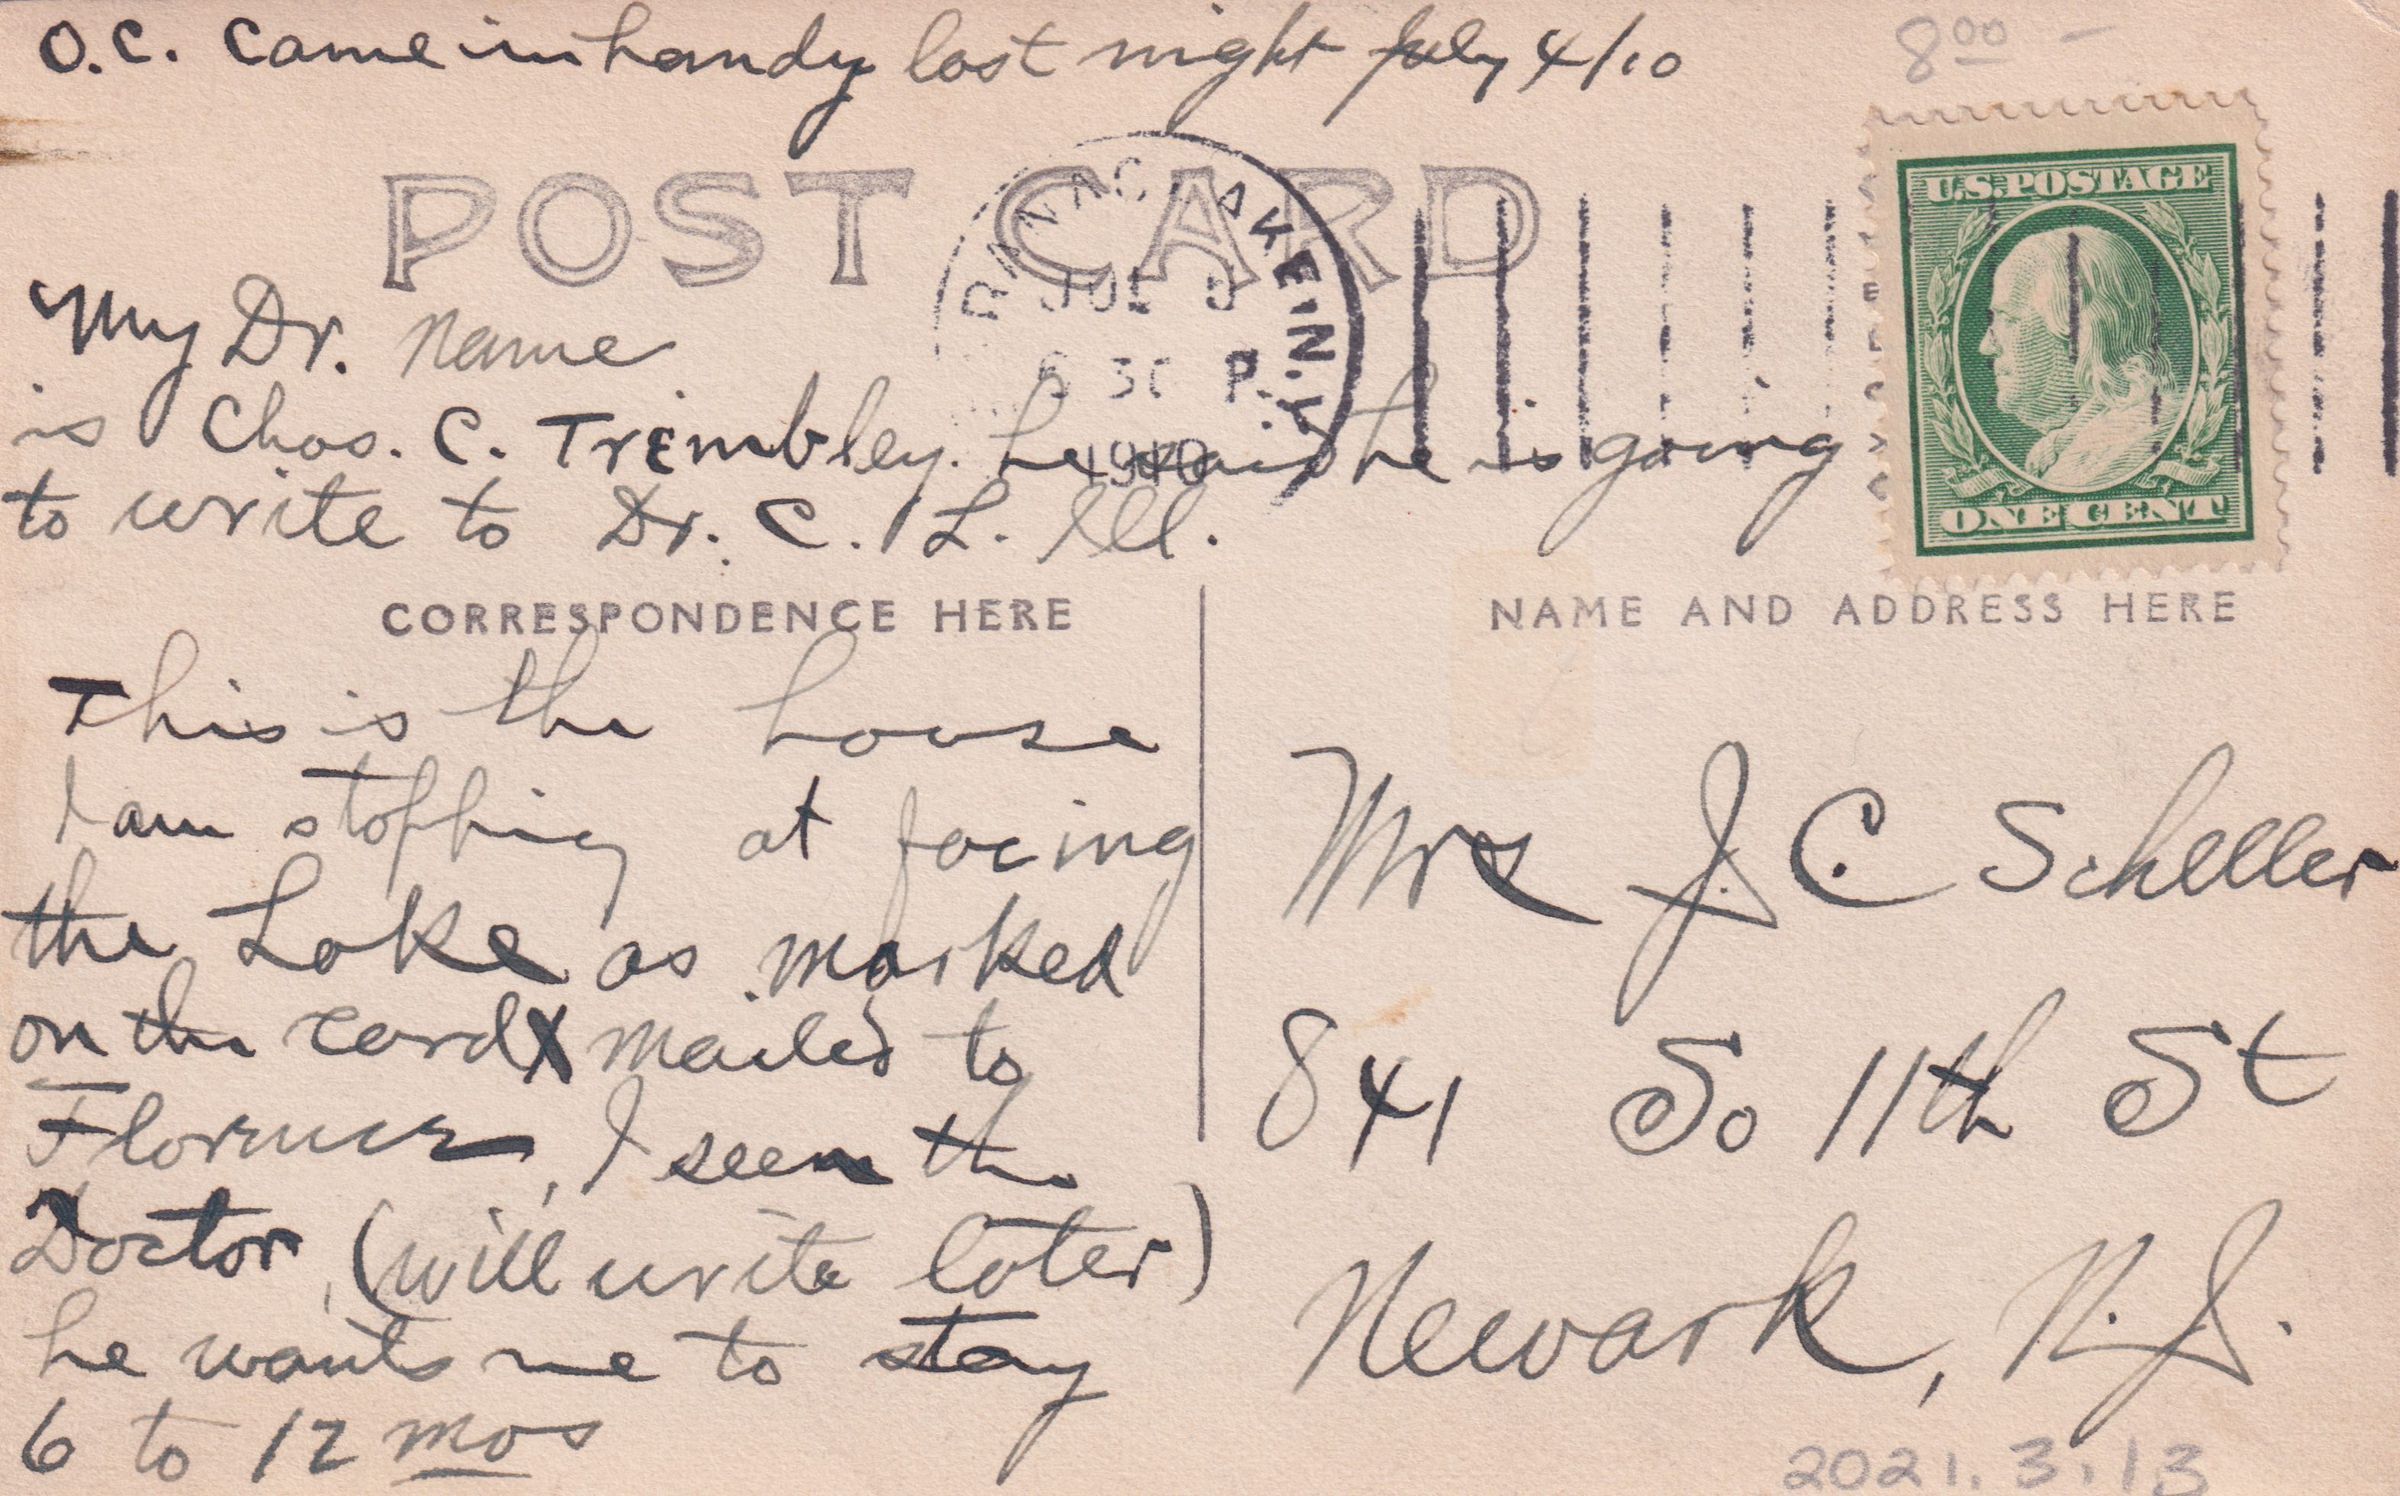 O.C. Came in handy last night July 4/10
8 00 –
POST CARD
U.S. POSTAGE
ONE CENT
RANAC LAKE, N.Y.
JUL 5
6 30 P.
1910
My Dr. name
is Chas. C. Trembley. he said he is going
to write to Dr. C. L. Ill.
CORRESPONDENCE HERE
This is the house
I am stopping at facing
the Lake as marked
on the card X mailed to
Florence, I seen the
Doctor, (will write later)
he wants me to stay
6 to 12 mos
NAME AND ADDRESS HERE
Mrs J. C. Scheller
841 So 11th St
Newark, N.J.
2021.3.13